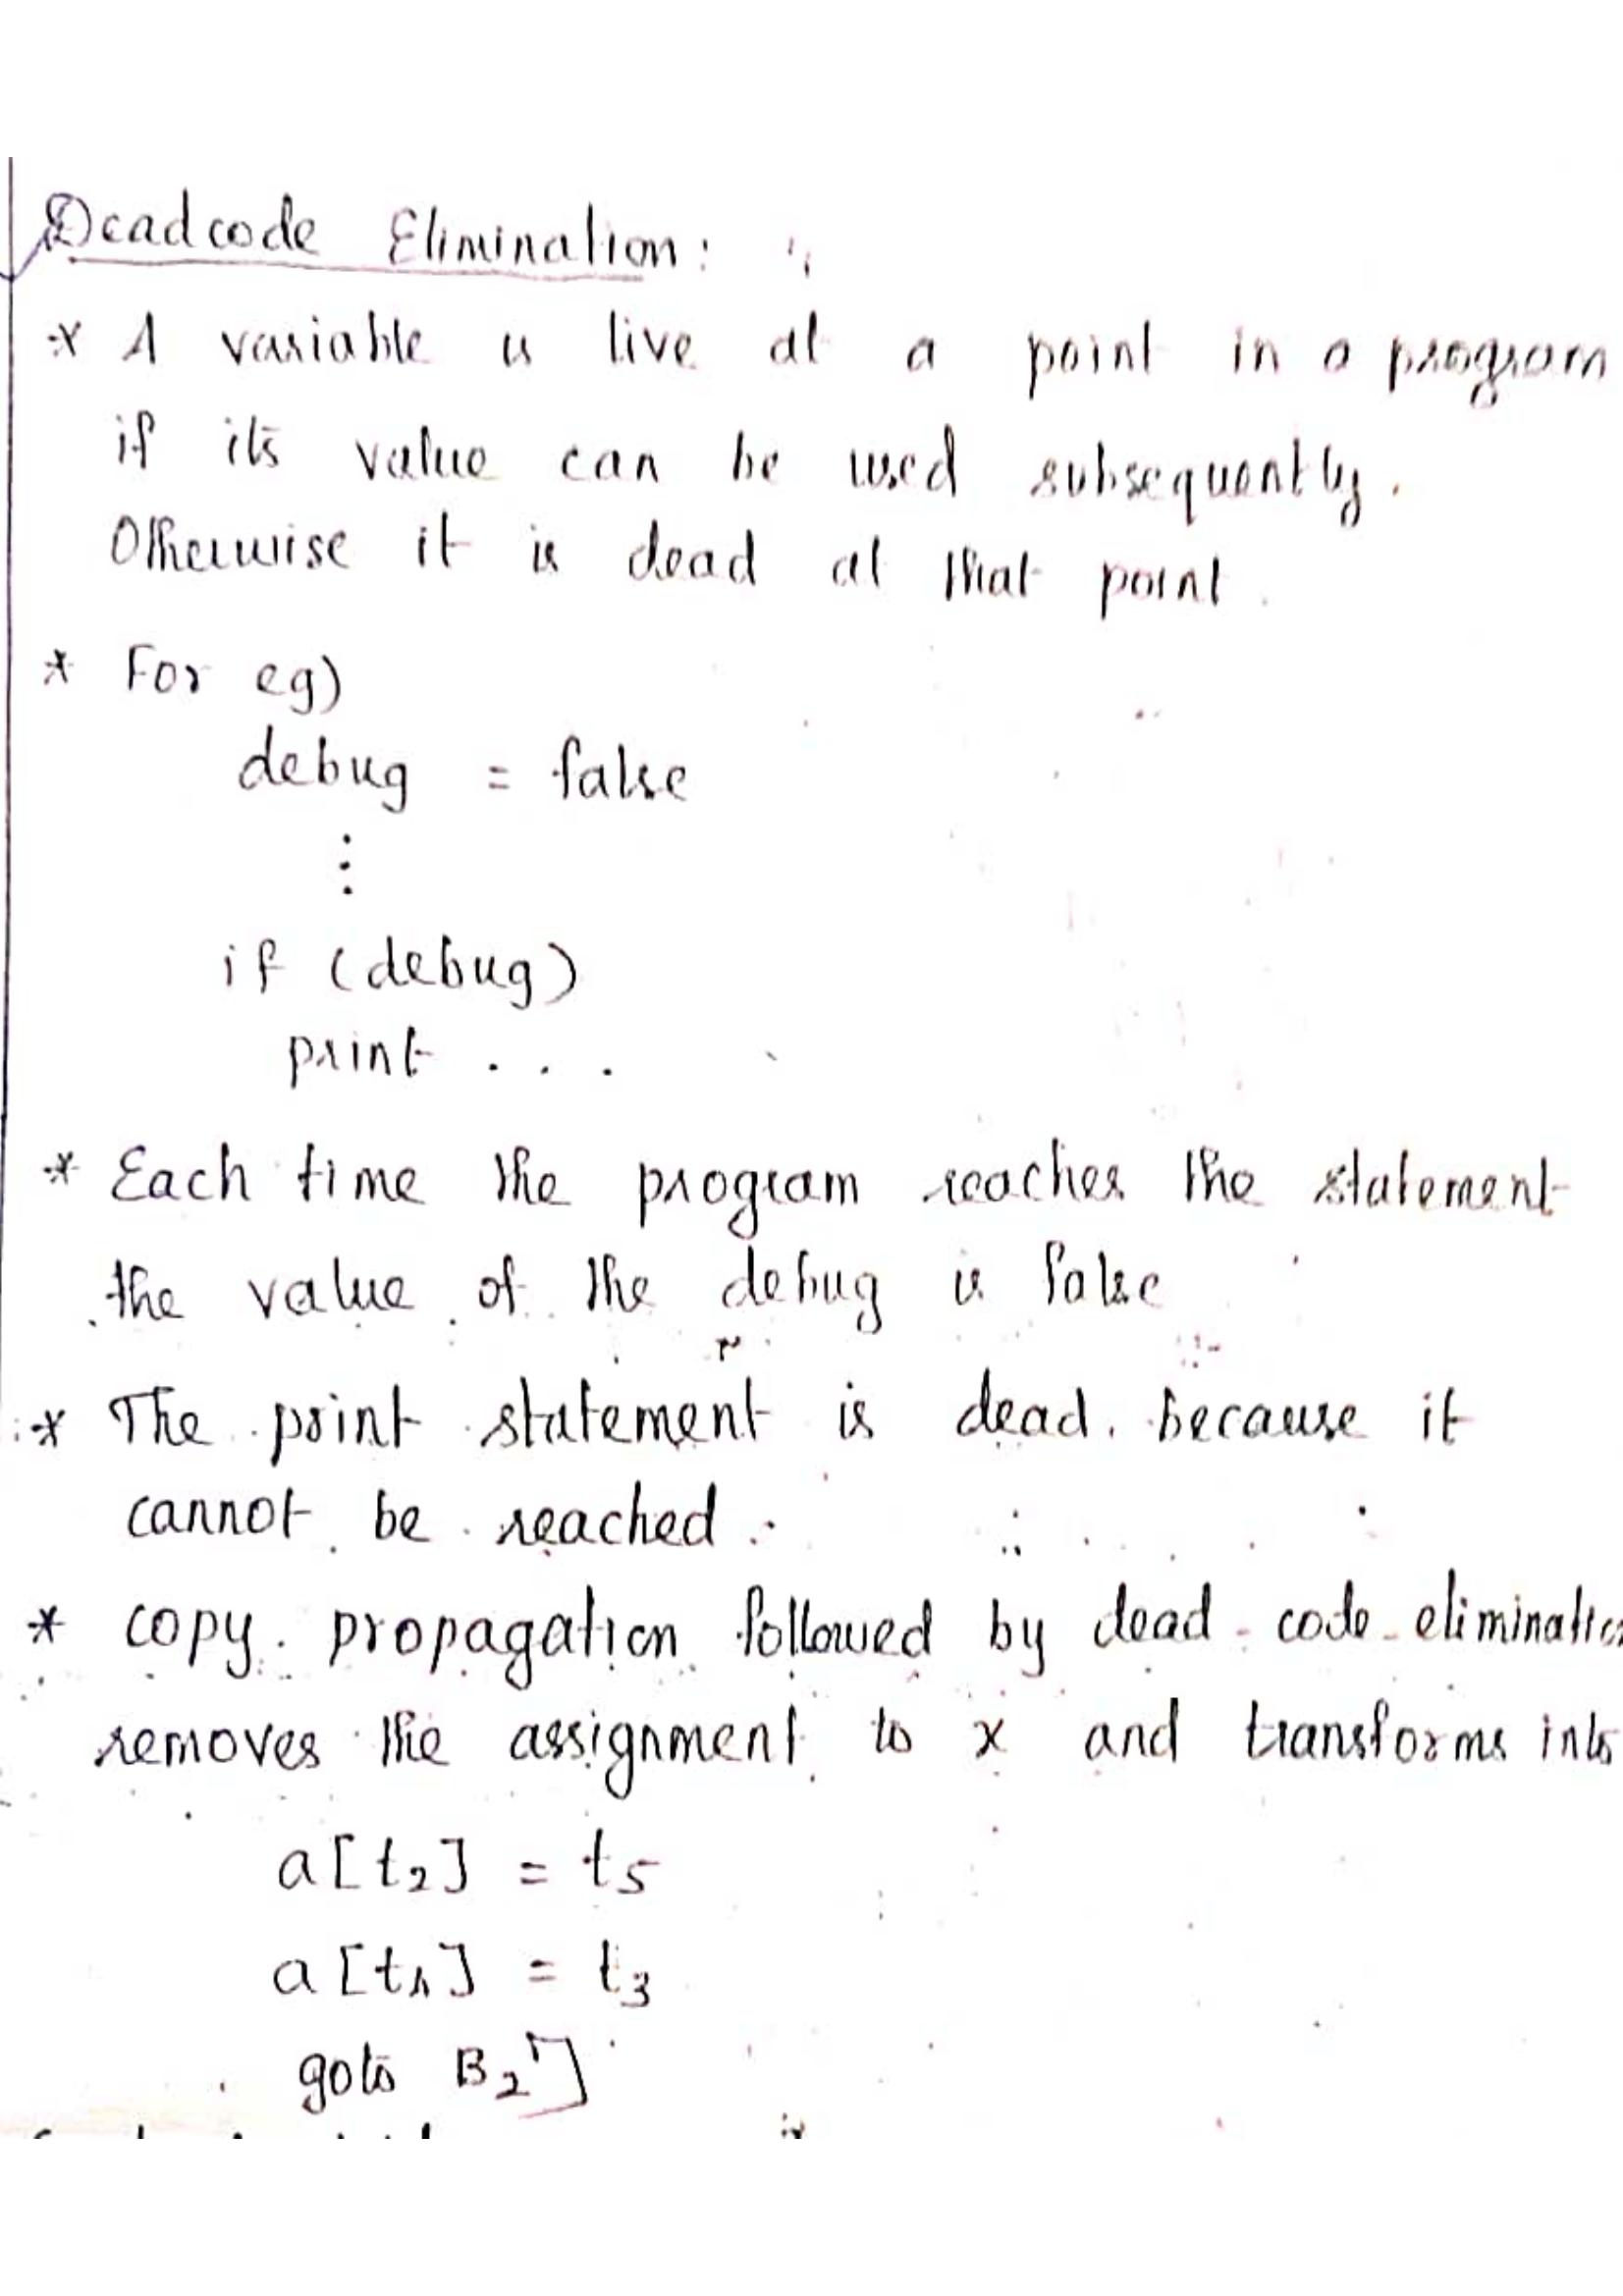 Deadcode Elimination:
* A variable is live at a point in a program
if its value can be used subsequently.
Otherwise it is dead at that point.
* For eg)
debug = false
⋮
if (debug)
print . . .
* Each time the program reaches the statement
the value of the debug is false
* The print statement is dead. because it
cannot be reached.
* copy propagation followed by dead-code-elimination
removes the assignment to x and transforms into
a[t2] = t5
a[t4] = t3
goto B2]